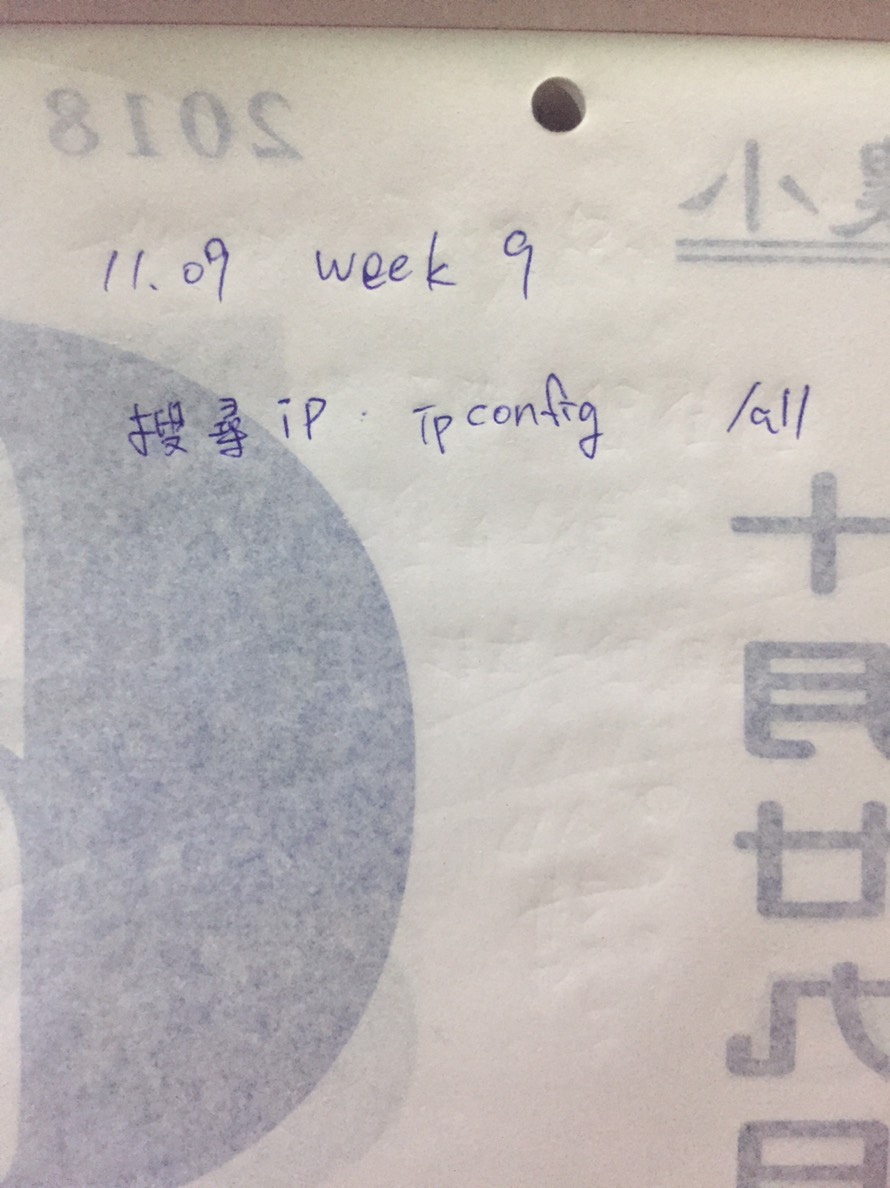 2018
小
11.09 week 9
搜尋 iP . ipconfig /all
十
月
廿
九
日